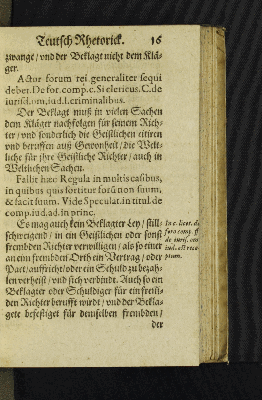 Teutsch Rhetorick. 16
zwange / und der Beklagt nicht dem Klä-
ger.
Actor forum rei generaliter sequi
debet. De for. comp. c. Si clericus. C. de
iurisd. om, iud. l. criminalibus.
Der Beklagt muß in vielen Sachen
dem Kläger nachfolgen für seinem Rich-
ter / und sonderlich die Geistlichen citiren
und beruffen auß Gewonheit / die Welt-
liche für ihre Geistliche Richter / auch in
Weltlichen Sachen.
Fallit hæc Regula in multis casibus,
in quibus quis sortitur forū non suum,
& facit suum. Vide Speculat. in titul. de
comp. iud. ad. in princ.
Es mag auch kein Beklagter Ley / still-
schweigend / in ein Geistlichen oder sonst
frembden Richter verwilligen / als so einer
an eim frembden Orth ein Vertrag / oder
Pact / auffricht / oder ein Schuld zu bezah-
len verheist / und sich verbindt. Auch so ein
Beklagter oder Schuldiger für ein frembd-
den Richter berufft wirdt / und der Bekla-
gete befestiget für demselben frembden /
der
In c. licet. de
foro comp. ff
de iurisd. om